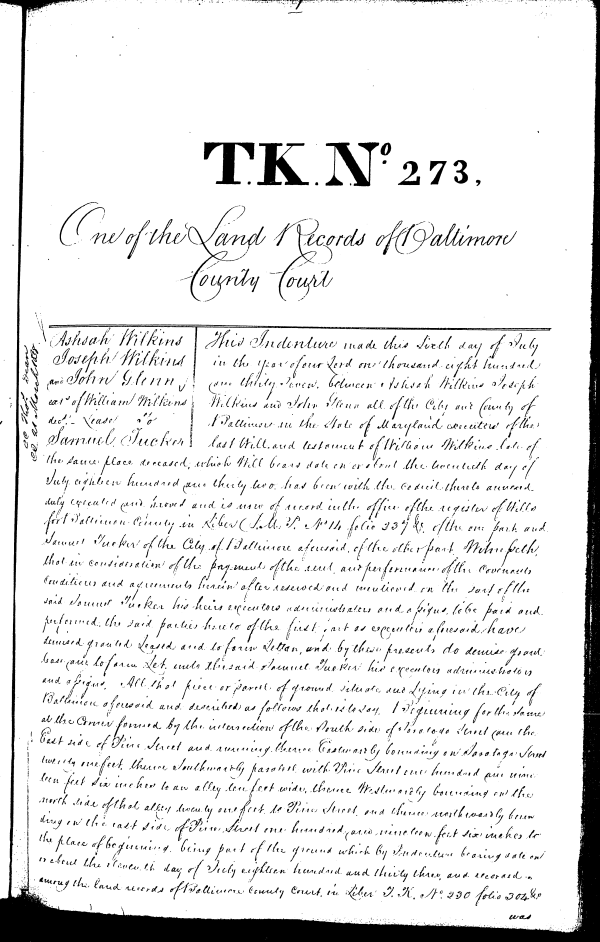 T.K. No. 273,
One of the Land Records of Baltimore
County Court
Achsah Wilkins
Joseph Wilkins
and John Glenn
exrs of William Wilkins
decd - Lease to
Samuel Tucker
This Indenture made this Sixth day of July
in the year of our Lord one thousand eight hundred
and thirty seven, between Achsah Wilkins Joseph
Wilkins and John Glenn all of the City and County of
Baltimore in the State of Maryland executors of the
last Will and testament of William Wilkins late of
the same place deceased, which Will bears date on or about the twentieth day of
July eighteen hundred and thirty two, has been with the codicil thereto annexed
duly executed and proved and is now of record in the office of the register of Wills
for Baltimore County in Liber No. 14 folio 337 &c. of the one part, and
Samuel Tucker of the City of Baltimore aforesaid, of the other part, Witnesseth,
that in consideration of the payment of the rent, and performance of the covenants
conditions and agreements herein after reserved and mentioned on the part of the
said Samuel Tucker his heirs executors administrators and assigns, to be paid and
performed, the said parties hereto of the first part as executors aforesaid, have
demised granted Leased and to farm Letten, and by these presents do demise grant
lease and to farm Let, unto the said Samuel Tucker his executors administrators
and assigns, All that piece or parcel of ground situate and Lying in the City of
Baltimore aforesaid and described as follows that is to say, Beginning for the same
at the Corner formed by the intersection of the South side of Saratoga Street and the
East side of Pine Street and running thence Eastwardly bounding on Saratoga Street
twenty one feet, thence Southwardly parallel with Pine Street one hundred and nine
teen feet six inches to an alley ten feet wide, thence Westwardly bounding on the
north side of that alley twenty one feet, to Pine Street, and thence northwardly boun
ding on the east side of Pine Street one hundred and nineteen feet six inches to
the place of beginning, being part of the ground which by Indenture bearing date on
or about the eleventh day of July eighteen hundred and thirty three, and recorded
among the land records of Baltimore County Court, in Liber T.K. No. 230 folio 304 &c
was